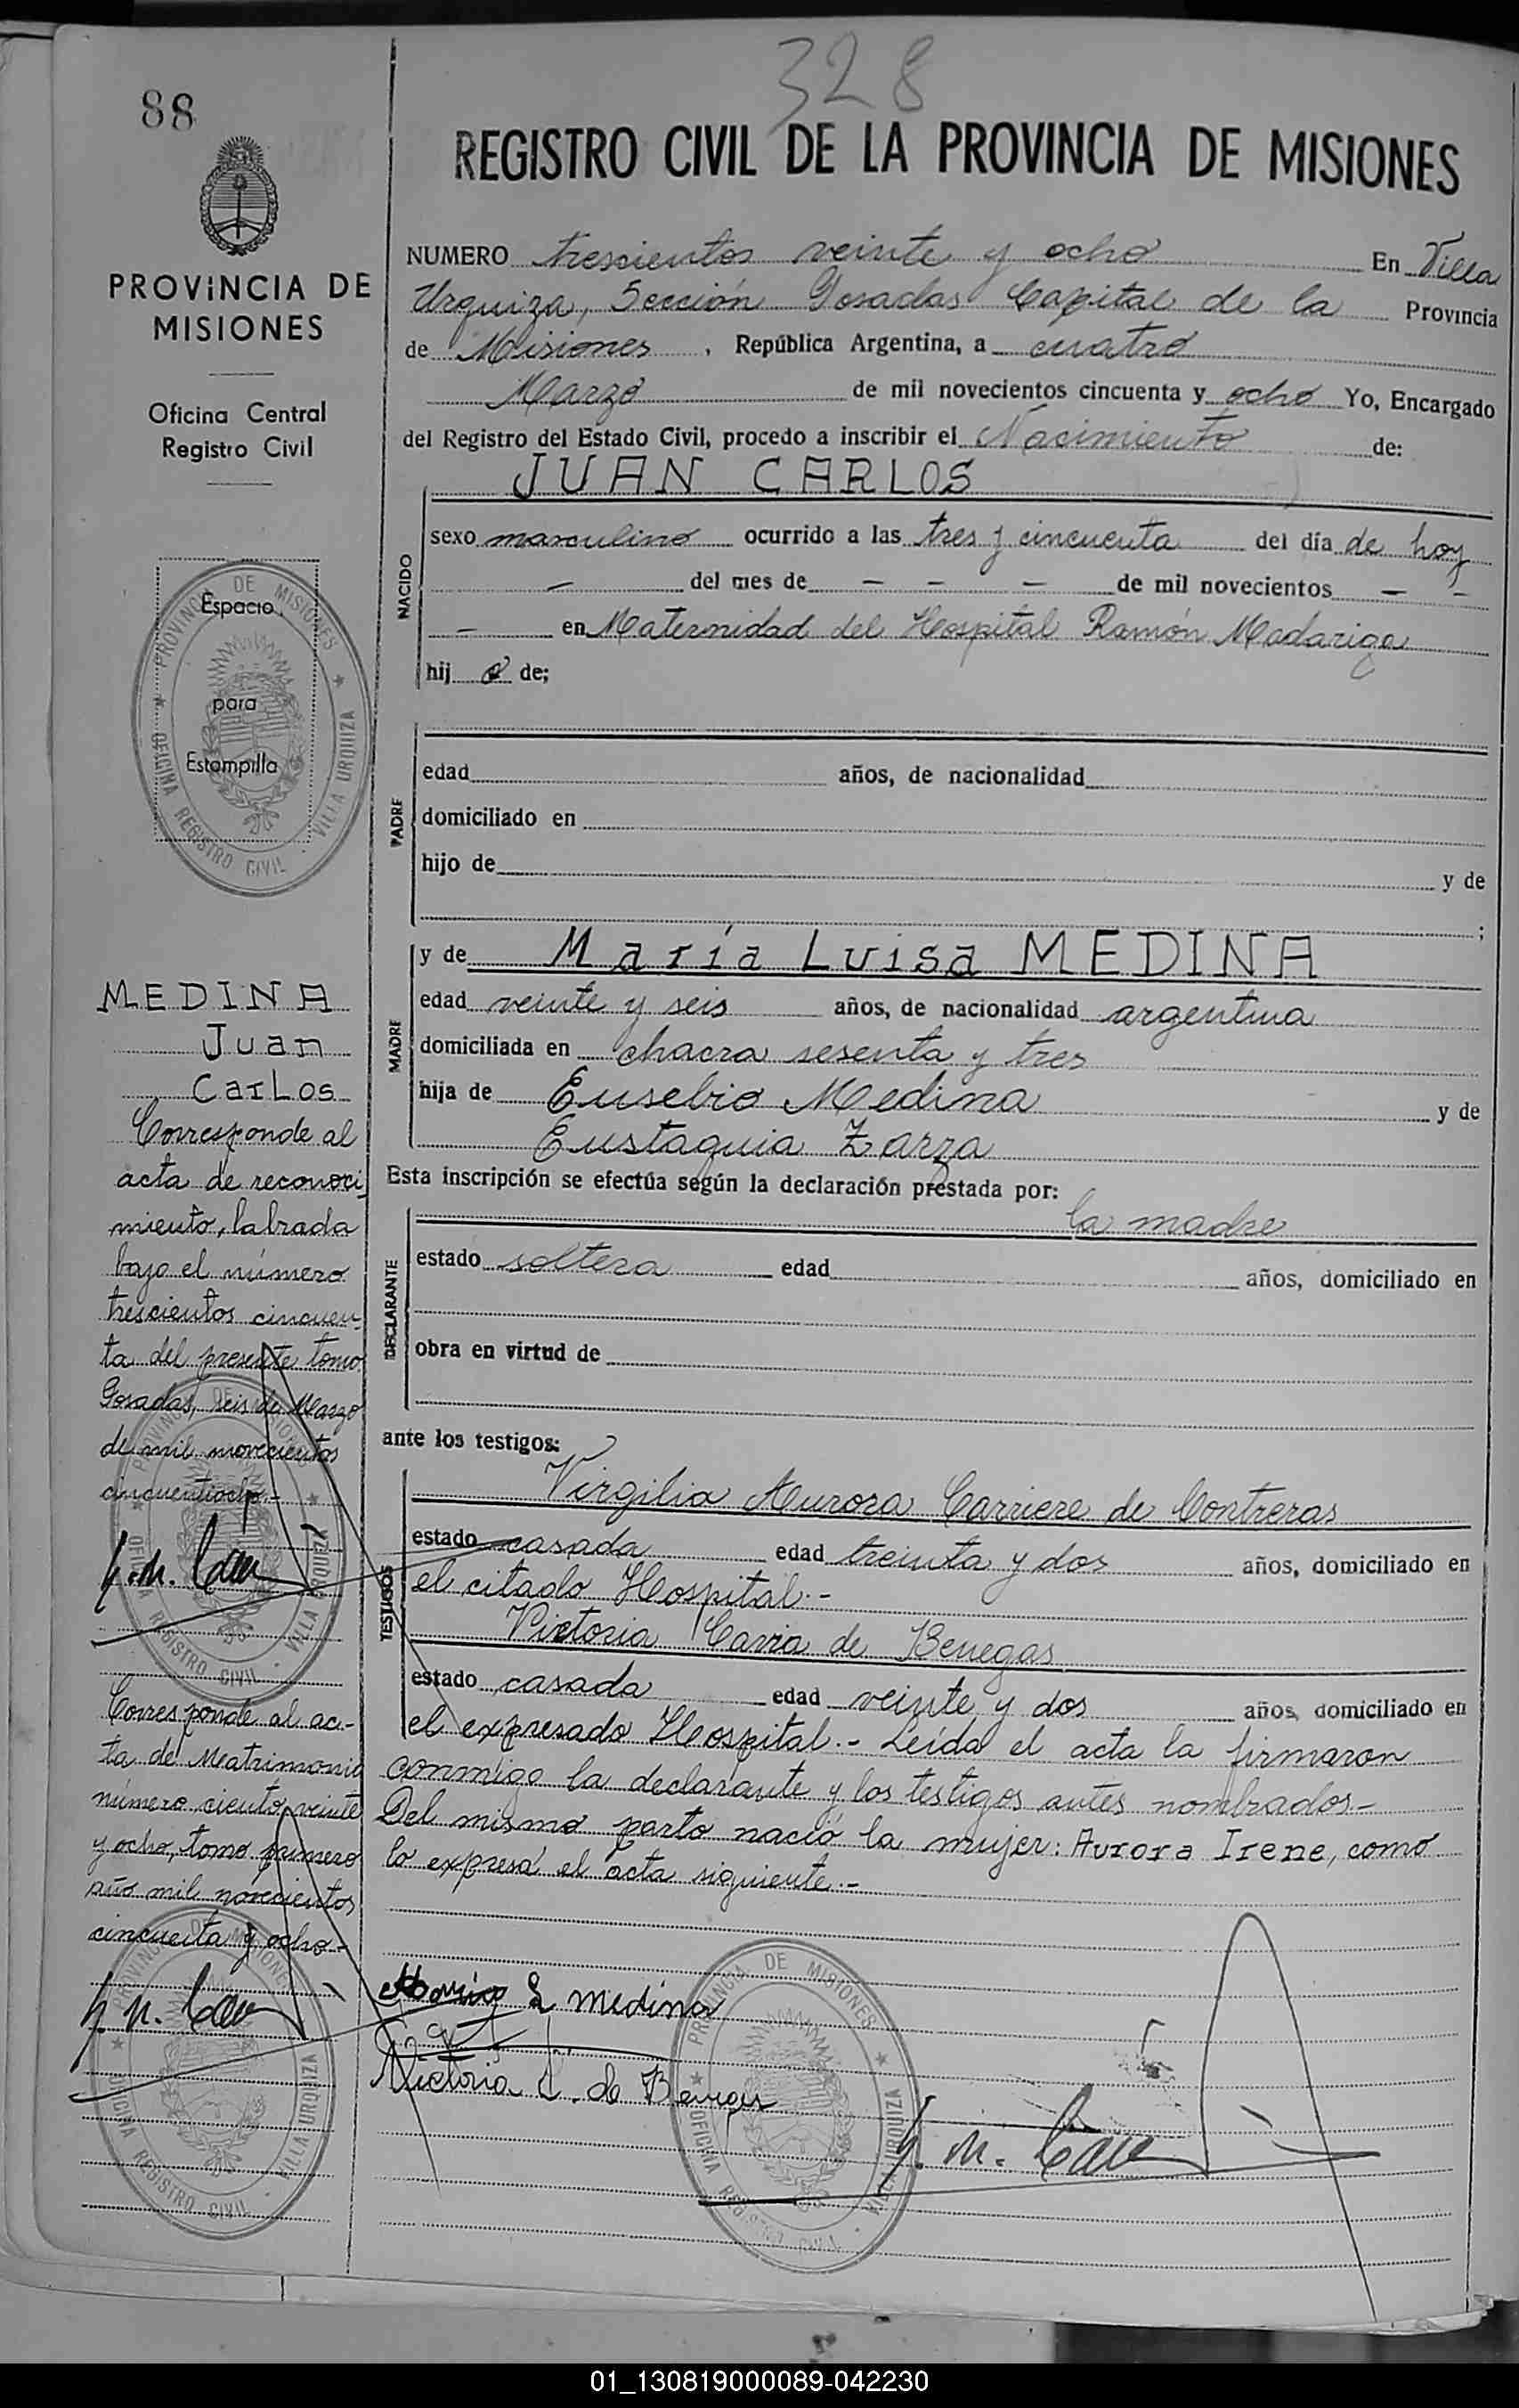 328
88
REGISTRO CIVIL DE LA PROVINCIA DE MISIONES
PROVINCIA DE
MISIONES
Oficina Central
Registro Civil
NUMERO trescientos veinte y ocho En Villa
Urquiza, Sección Posadas Capital de la Provincia
de Misiones, República Argentina, a cuatro
Marzo de mil novecientos cincuenta y ocho Yo, Encargado
del Registro del Estado Civil, procedo a inscribir el Nacimiento de:
NACIDO
JUAN CARLOS
sexo masculino ocurrido a las tres y cincuenta del día de hoy
— del mes de — — — de mil novecientos — —
— en Maternidad del Hospital Ramón Madariga
hij o de;
PROVINCIA DE MISIONES
OFICINA REGISTRO CIVIL · VILLA URQUIZA
Espacio
para
Estampilla
PADRE
edad años, de nacionalidad
domiciliado en
hijo de y de
;
MADRE
y de María Luisa MEDINA
edad veinte y seis años, de nacionalidad argentina
domiciliada en chacra sesenta y tres
hija de Eusebio Medina y de
Eustaquia Zarza
Esta inscripción se efectúa según la declaración prestada por:
DECLARANTE
la madre
estado soltera edad años, domiciliado en
obra en virtud de
ante los testigos:
TESTIGOS
Virgilia Aurora Carriere de Contreras
estado casada edad treinta y dos años, domiciliado en
el citado Hospital.-
Victoria Cavia de Benegas
estado casada edad veinte y dos años, domiciliado en
el expresado Hospital.- Leída el acta la firmaron
conmigo la declarante y los testigos antes nombrados-
Del mismo parto nació la mujer: Aurora Irene, como
lo expresa el acta siguiente.-
MEDINA
Juan
Carlos
Corresponde al
acta de reconoci-
miento, labrada
bajo el número
trescientos cincuen-
ta del presente tomo
Posadas, seis de Marzo
de mil novecientos
cincuentiocho.-
PROVINCIA DE MISIONES
OFICINA REGISTRO CIVIL · VILLA URQUIZA
Corresponde al ac-
ta de Matrimonio
número ciento veinte
y ocho, tomo primero
año mil novecientos
cincuenta y ocho-
PROVINCIA DE MISIONES
OFICINA REGISTRO CIVIL · VILLA URQUIZA
L medina
Victoria C. de Benegas
PROVINCIA DE MISIONES
OFICINA REGISTRO CIVIL · VILLA URQUIZA
01_130819000089-042230